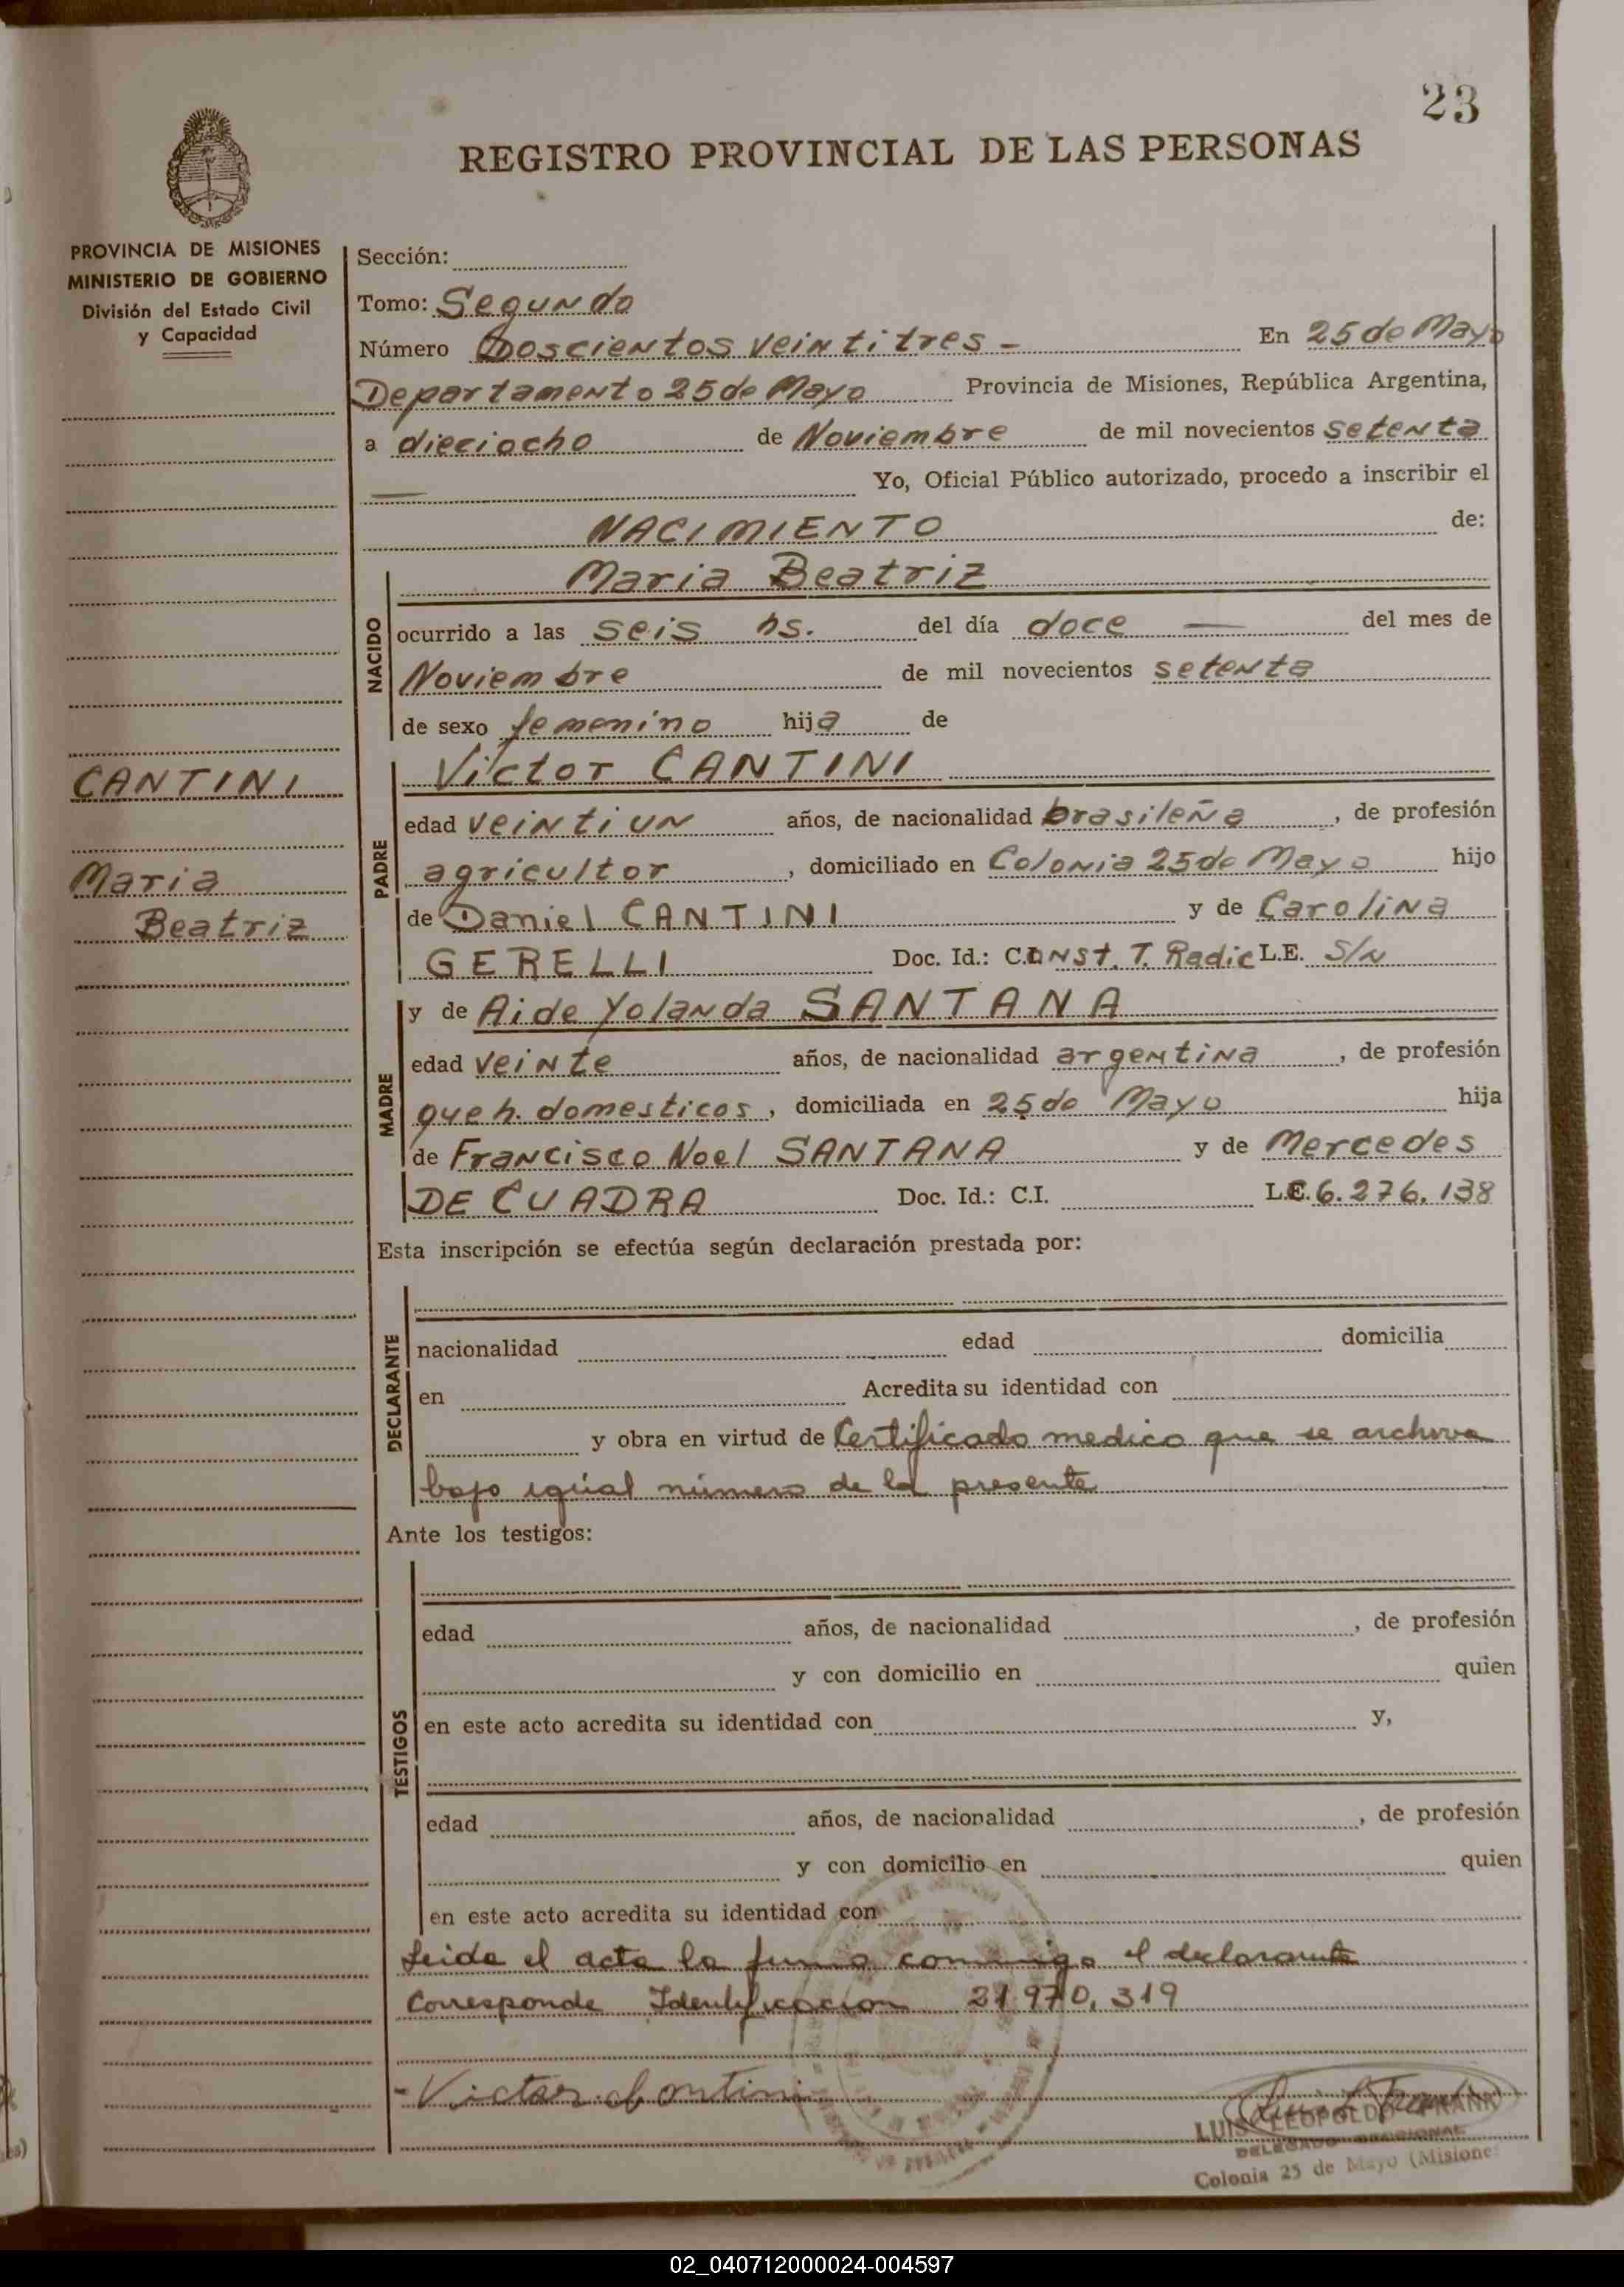 23
REGISTRO PROVINCIAL DE LAS PERSONAS
PROVINCIA DE MISIONES
MINISTERIO DE GOBIERNO
División del Estado Civil
y Capacidad
CANTINI
Maria
Beatriz
Sección:
Tomo: Segundo
Número Doscientos veintitres - En 25 de Mayo
Departamento 25 de Mayo Provincia de Misiones, República Argentina,
a dieciocho de Noviembre de mil novecientos setenta
— Yo, Oficial Público autorizado, procedo a inscribir el
NACIMIENTO de:
NACIDO
Maria Beatriz
ocurrido a las seis hs. del día doce — del mes de
Noviembre de mil novecientos setenta
de sexo femenino hija de
PADRE
Victor CANTINI
edad veintiun años, de nacionalidad brasileña, de profesión
agricultor, domiciliado en Colonia 25 de Mayo hijo
de Daniel CANTINI y de Carolina
GERELLI Doc. Id.: Const. T. Radic L.E. S/N
MADRE
y de Aide Yolanda SANTANA
edad veinte años, de nacionalidad argentina, de profesión
que h. domesticos, domiciliada en 25 de Mayo hija
de Francisco Noel SANTANA y de Mercedes
DE CUADRA Doc. Id.: C.I. L.C. 6.276.138
Esta inscripción se efectúa según declaración prestada por:
DECLARANTE
nacionalidad edad domicilia
en Acredita su identidad con
y obra en virtud de Certificado medico que se archiva
bajo igual número de la presente
Ante los testigos:
TESTIGOS
edad años, de nacionalidad , de profesión
y con domicilio en quien
en este acto acredita su identidad con y,
edad años, de nacionalidad , de profesión
y con domicilio en quien
en este acto acredita su identidad con
Leida el acta la firma conmigo el declarante
Corresponde Identificacion 21.970.319
- Victor Cantini
LUIS LEOPOLDO FRANK
DELEGADO SECCIONAL
Colonia 25 de Mayo (Misiones
02_040712000024-004597